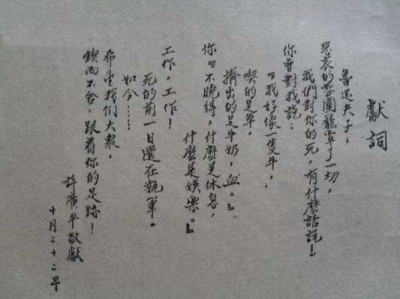 獻詞
魯迅夫子:
悲哀的雰圍籠罩了一切,
我們對你的死,有什麼話說!
你曾對我說:
「我好像一隻牛,
喫的是草,
擠出的是牛奶,血。」
你「不曉得,什麼是休息,
什麼是娛樂。」
工作,工作!
死的前一日還在執筆。
如今……
希望我們大眾,
鍥而不舍,跟着你的足跡!
許廣平敬獻
十月二十二早